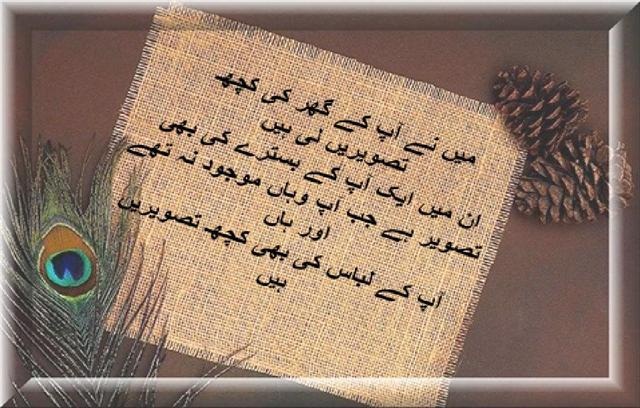 میں نے آپ کے گھر کی کچھ
تصویریں لی ہیں
ان میں ایک آپ کے بسترے کی بھی
تصویر ہے جب آپ وہاں موجود نہ تھے
اور ہاں
آپ کے لباس کی بھی کچھ تصویریں
ہیں